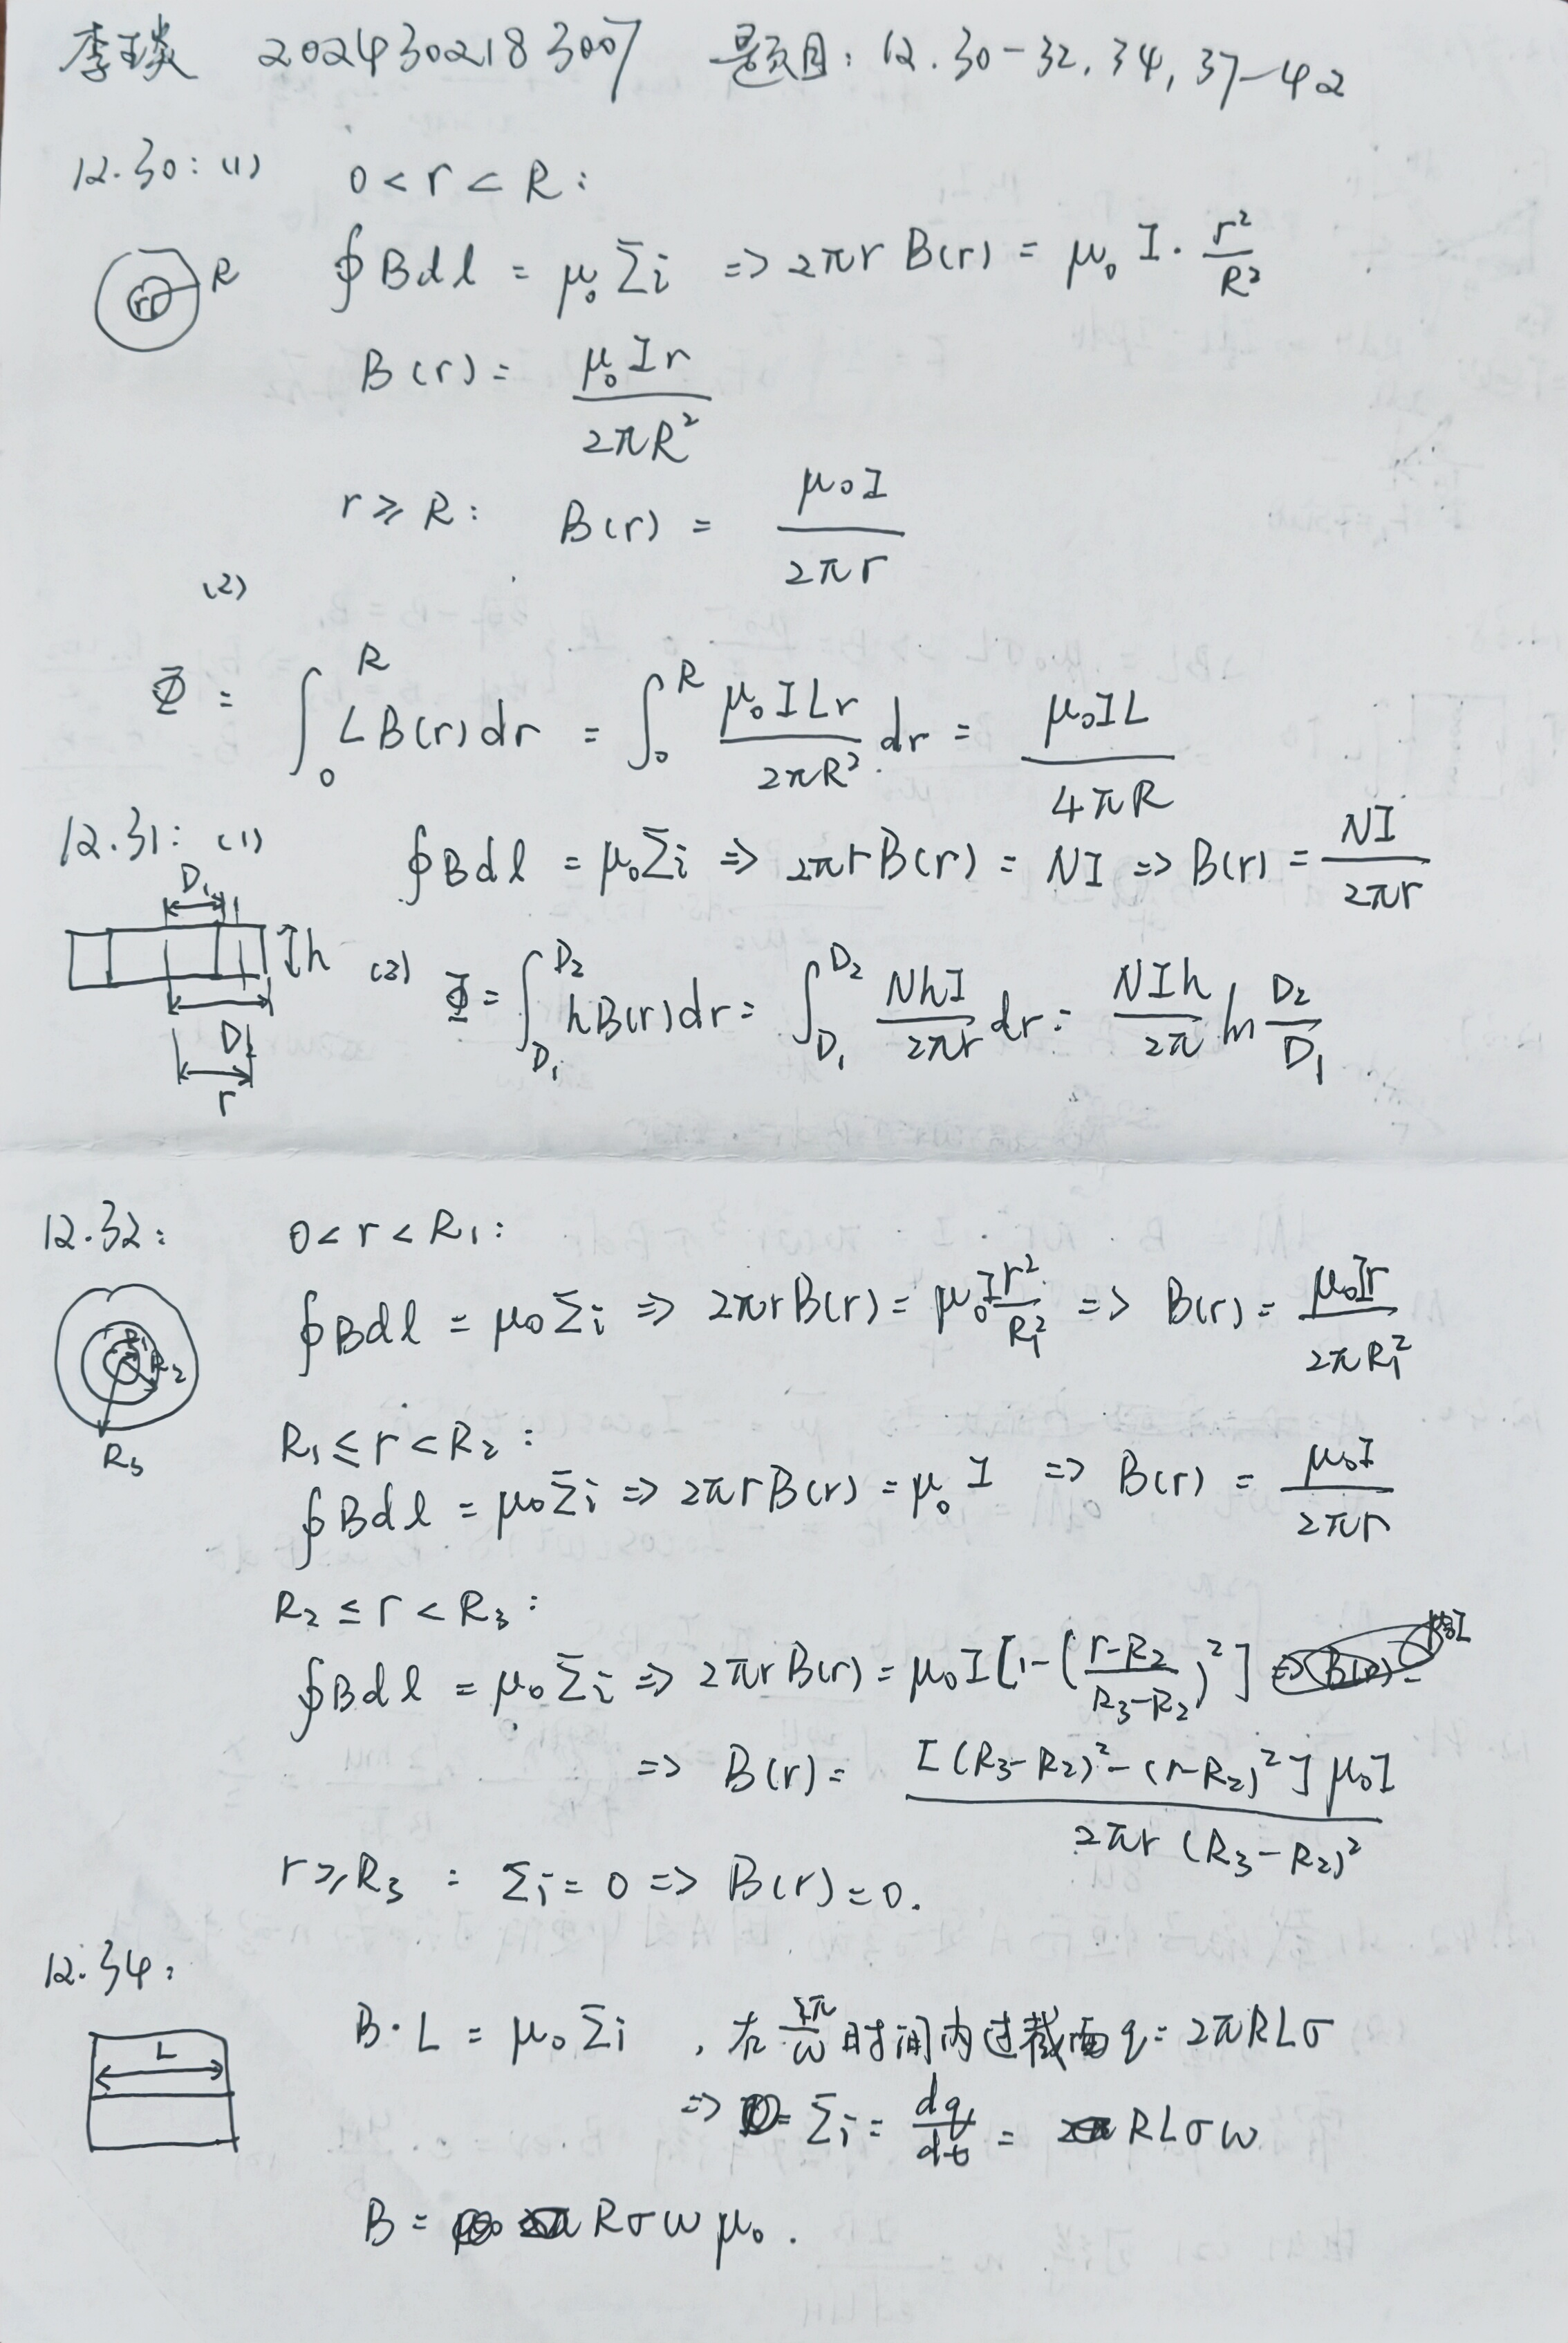 李琰 2024302183007 题目: 12.30-32, 34, 37-42
12.30: (1) 0 < r < R:
R
r
∮Bdl = μ₀Σi => 2πr B(r) = μ₀ I · r²/R²
B(r) = μ₀Ir/2πR²
r ≥ R: B(r) = μ₀I/2πr
(2)
Φ = ∫₀ᴿ L B(r) dr = ∫₀ᴿ μ₀ILr/2πR² dr = μ₀IL/4πR
12.31: (1) ∮Bdl = μ₀Σi => 2πrB(r) = NI => B(r) = NI/2πr
D₁
h
D₂
r
(2) Φ = ∫_{D₁}^{D₂} hB(r)dr = ∫_{D₁}^{D₂} NhI/2πr dr = NIh/2π ln D₂/D₁
12.32: 0 < r < R₁:
∮Bdl = μ₀Σi => 2πrB(r) = μ₀I r²/R₁² => B(r) = μ₀Ir/2πR₁²
R₁
R₂
R₃
R₁ ≤ r < R₂:
∮Bdl = μ₀Σi => 2πrB(r) = μ₀ I => B(r) = μ₀I/2πr
R₂ ≤ r < R₃:
∮Bdl = μ₀Σi => 2πrB(r) = μ₀I[1-((r-R₂)/(R₃-R₂))²]
=> B(r) = [(R₃-R₂)²-(r-R₂)²]μ₀I/2πr(R₃-R₂)²
r ≥ R₃: Σi = 0 => B(r) = 0.
12.34:
L
B·L = μ₀Σi , 在 2π/ω 时间内过截面 q = 2πRLσ
=> Σi = dq/dt = RLσω
B = Rσωμ₀.